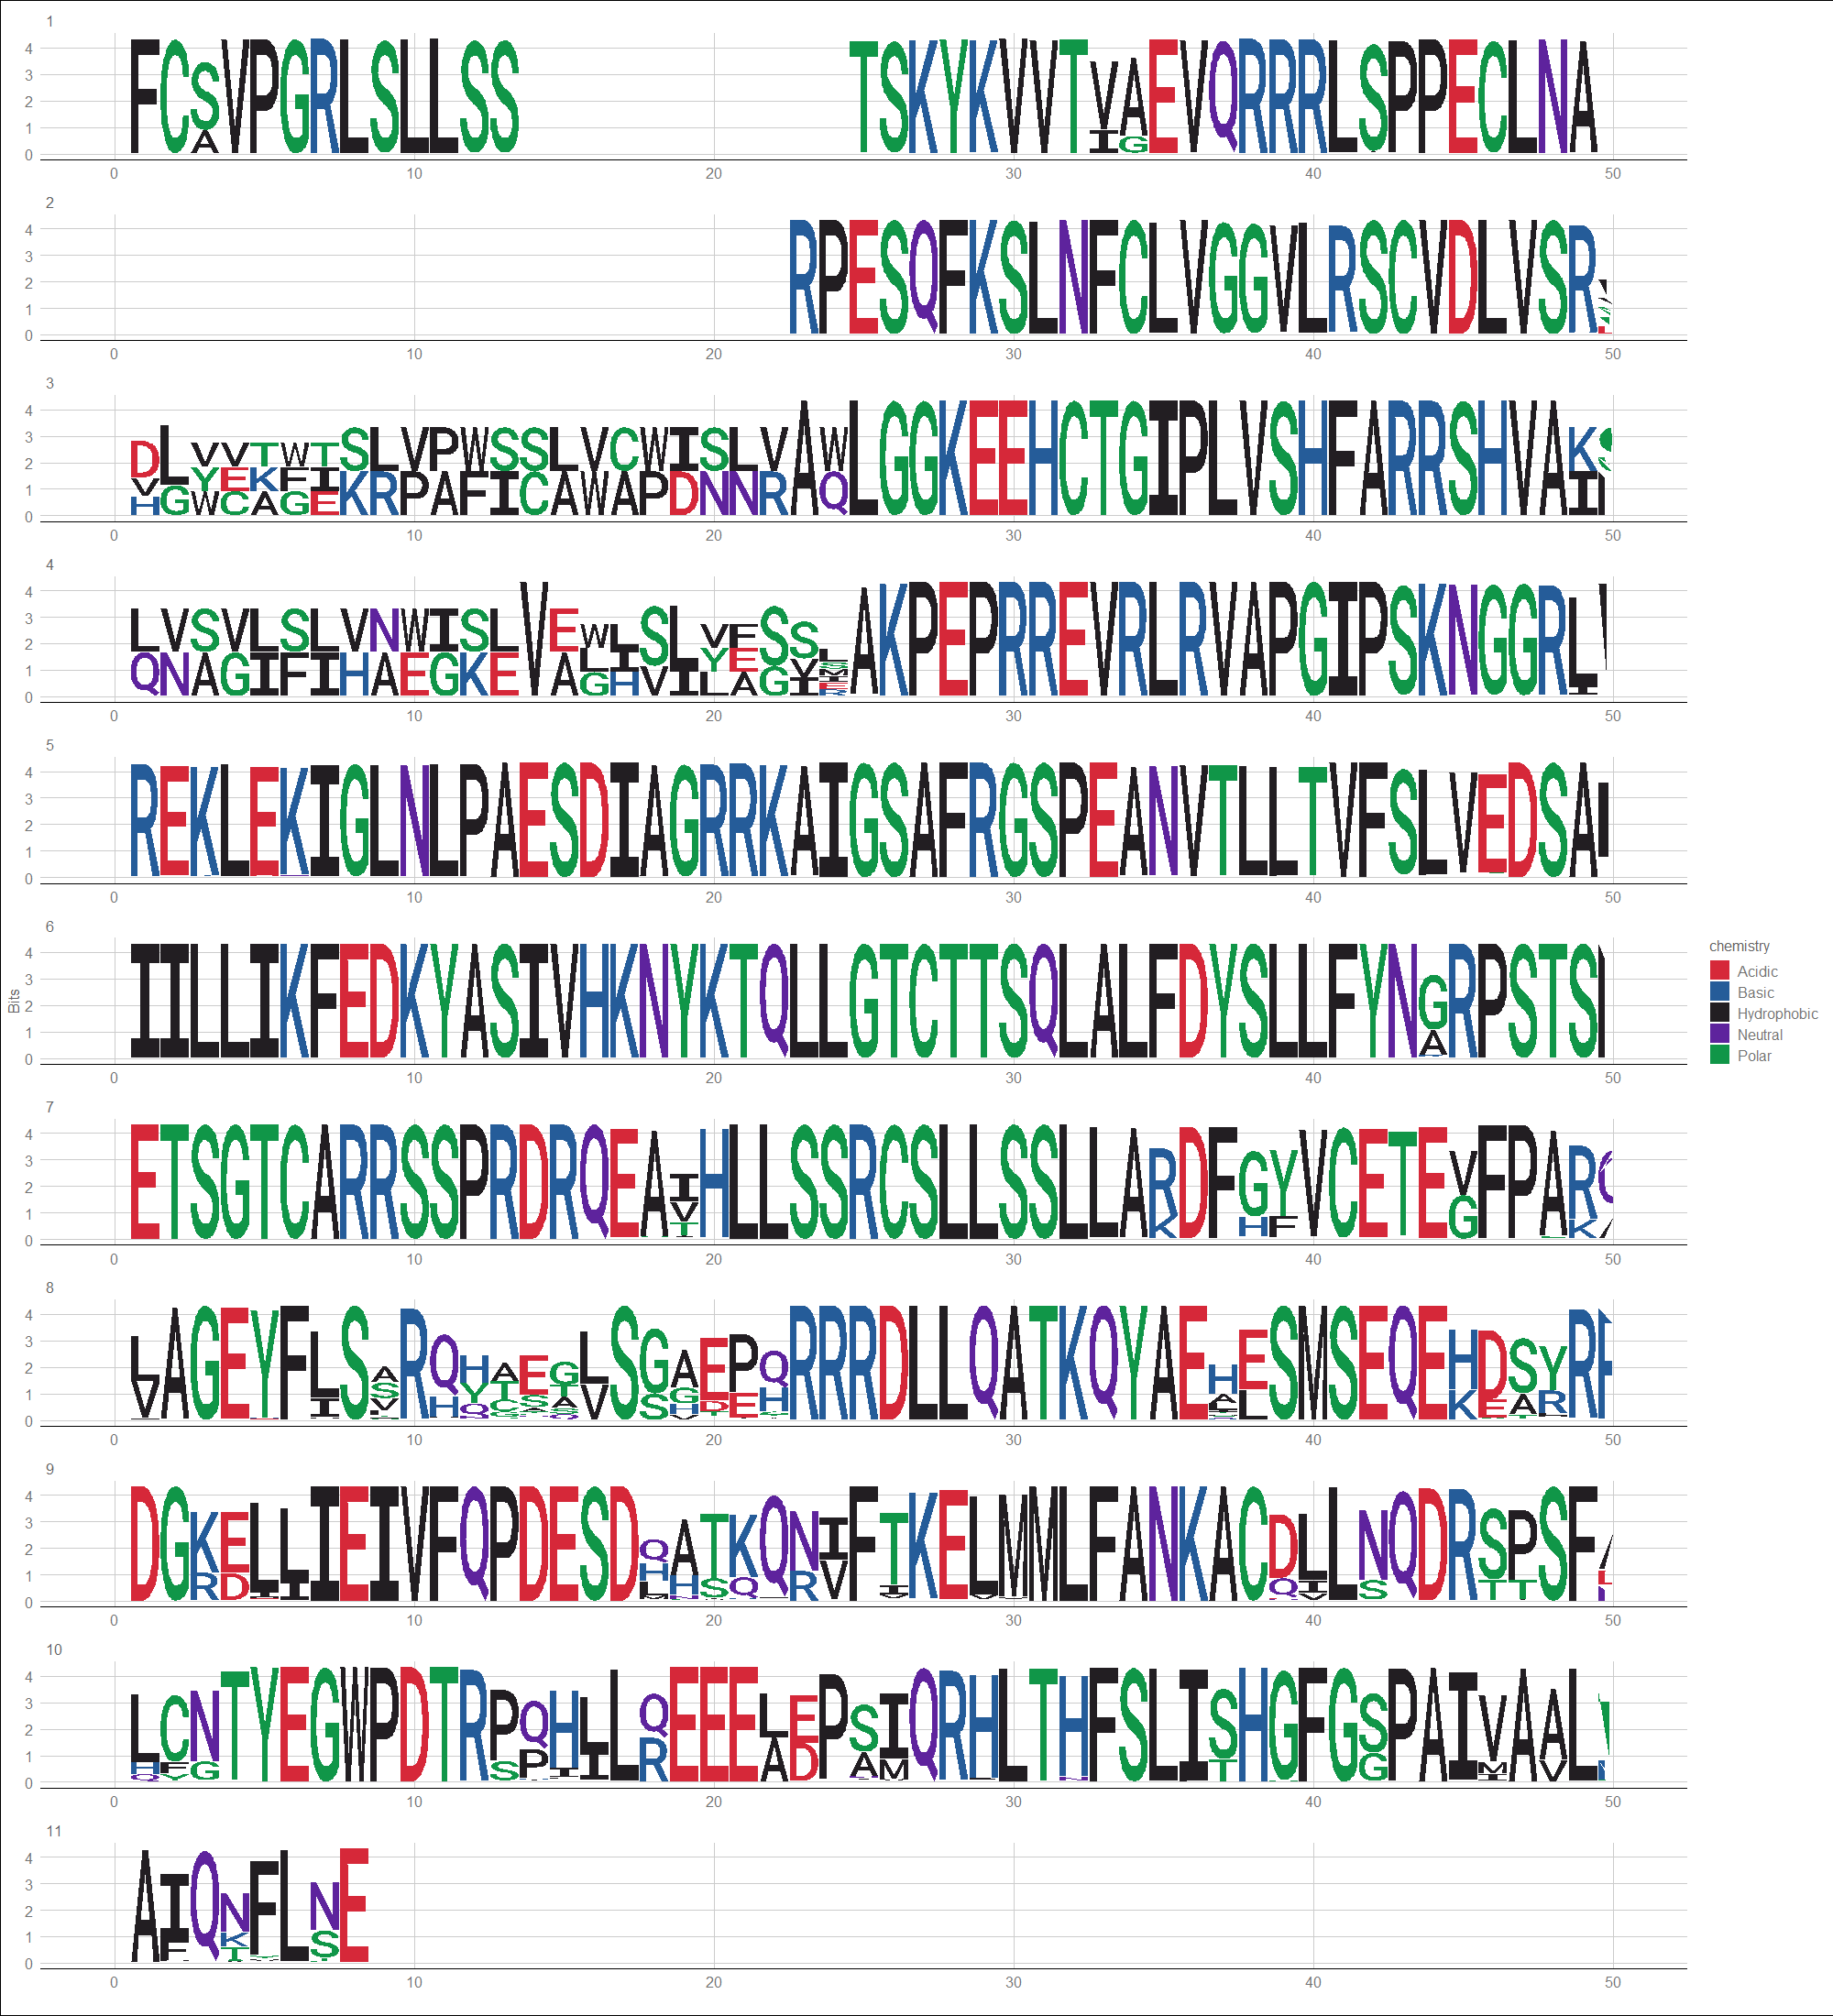 1
4 3 2 1 0
FCSVPGRLSLLSS TSKYKVVTVAEVQRRRLSPPECLNA
A I G
0 10 20 30 40 50
2
4 3 2 1 0
RPESQFKSLNFCLVGGVLRSCVDLVSR
0 10 20 30 40 50
3
4 3 2 1 0
DLVVTWTSLVPWSSLVCWISLVAWLGGKEEHCTGIPLVSHFARRSHVAK
V YEKFI
HGWCAGEKRPAFICAWAPDNNR Q I
0 10 20 30 40 50
4
4 3 2 1 0
LVSVLSLVNWISLVEWLSLVFSS AKPEPRREVRLRVAPGIPSKNGGRL
LI YE Y
QNAGIFIHAEGKE AGHVILAGI I
0 10 20 30 40 50
5
4 3 2 1 0
REKLEKIGLNLPAESDIAGRRKAIGSAFRGSPEANVTLLTVFSLVEDSA
0 10 20 30 40 50
6
4 3 2 1 0
IILLIKFEDKYASIVHKNYKTQLLGTCTTSQLALFDYSLLFYNGRPSTS
A
0 10 20 30 40 50
7
4 3 2 1 0
ETSGTCARRSSPRDRQEAIHLLSSRCSLLSSLLARDFGYVCETEVFPAR
V K HF G K
T
0 10 20 30 40 50
8
4 3 2 1 0
LAGEYFLSARQHAEGLSGAEPQRRRDLLQATKQYAEHESMSEQEHDSYR
V I S HY V SGDEH L KEAR
0 10 20 30 40 50
9
4 3 2 1 0
DGKELLIEIVFQPDESDQATKQNIFTKELMMLFANKACDLLNQDRSPSF
RD I HHSQ RV I Q S TT
0 10 20 30 40 50
10
4 3 2 1 0
LCNTYEGWPDTRPQHLLQEEELEPSIQRHLTHFSLISHGFGSPAIVAAL
HFG SP I R AD AM T G M V
0 10 20 30 40 50
11
4 3 2 1 0
AIQNFLNE
F K S
0 10 20 30 40 50
Bits
chemistry
Acidic
Basic
Hydrophobic
Neutral
Polar